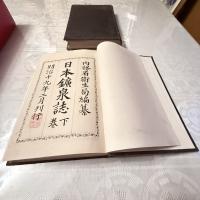 内務省衛生局編纂
日本鑛泉誌 下卷
明治十九年三月刊行